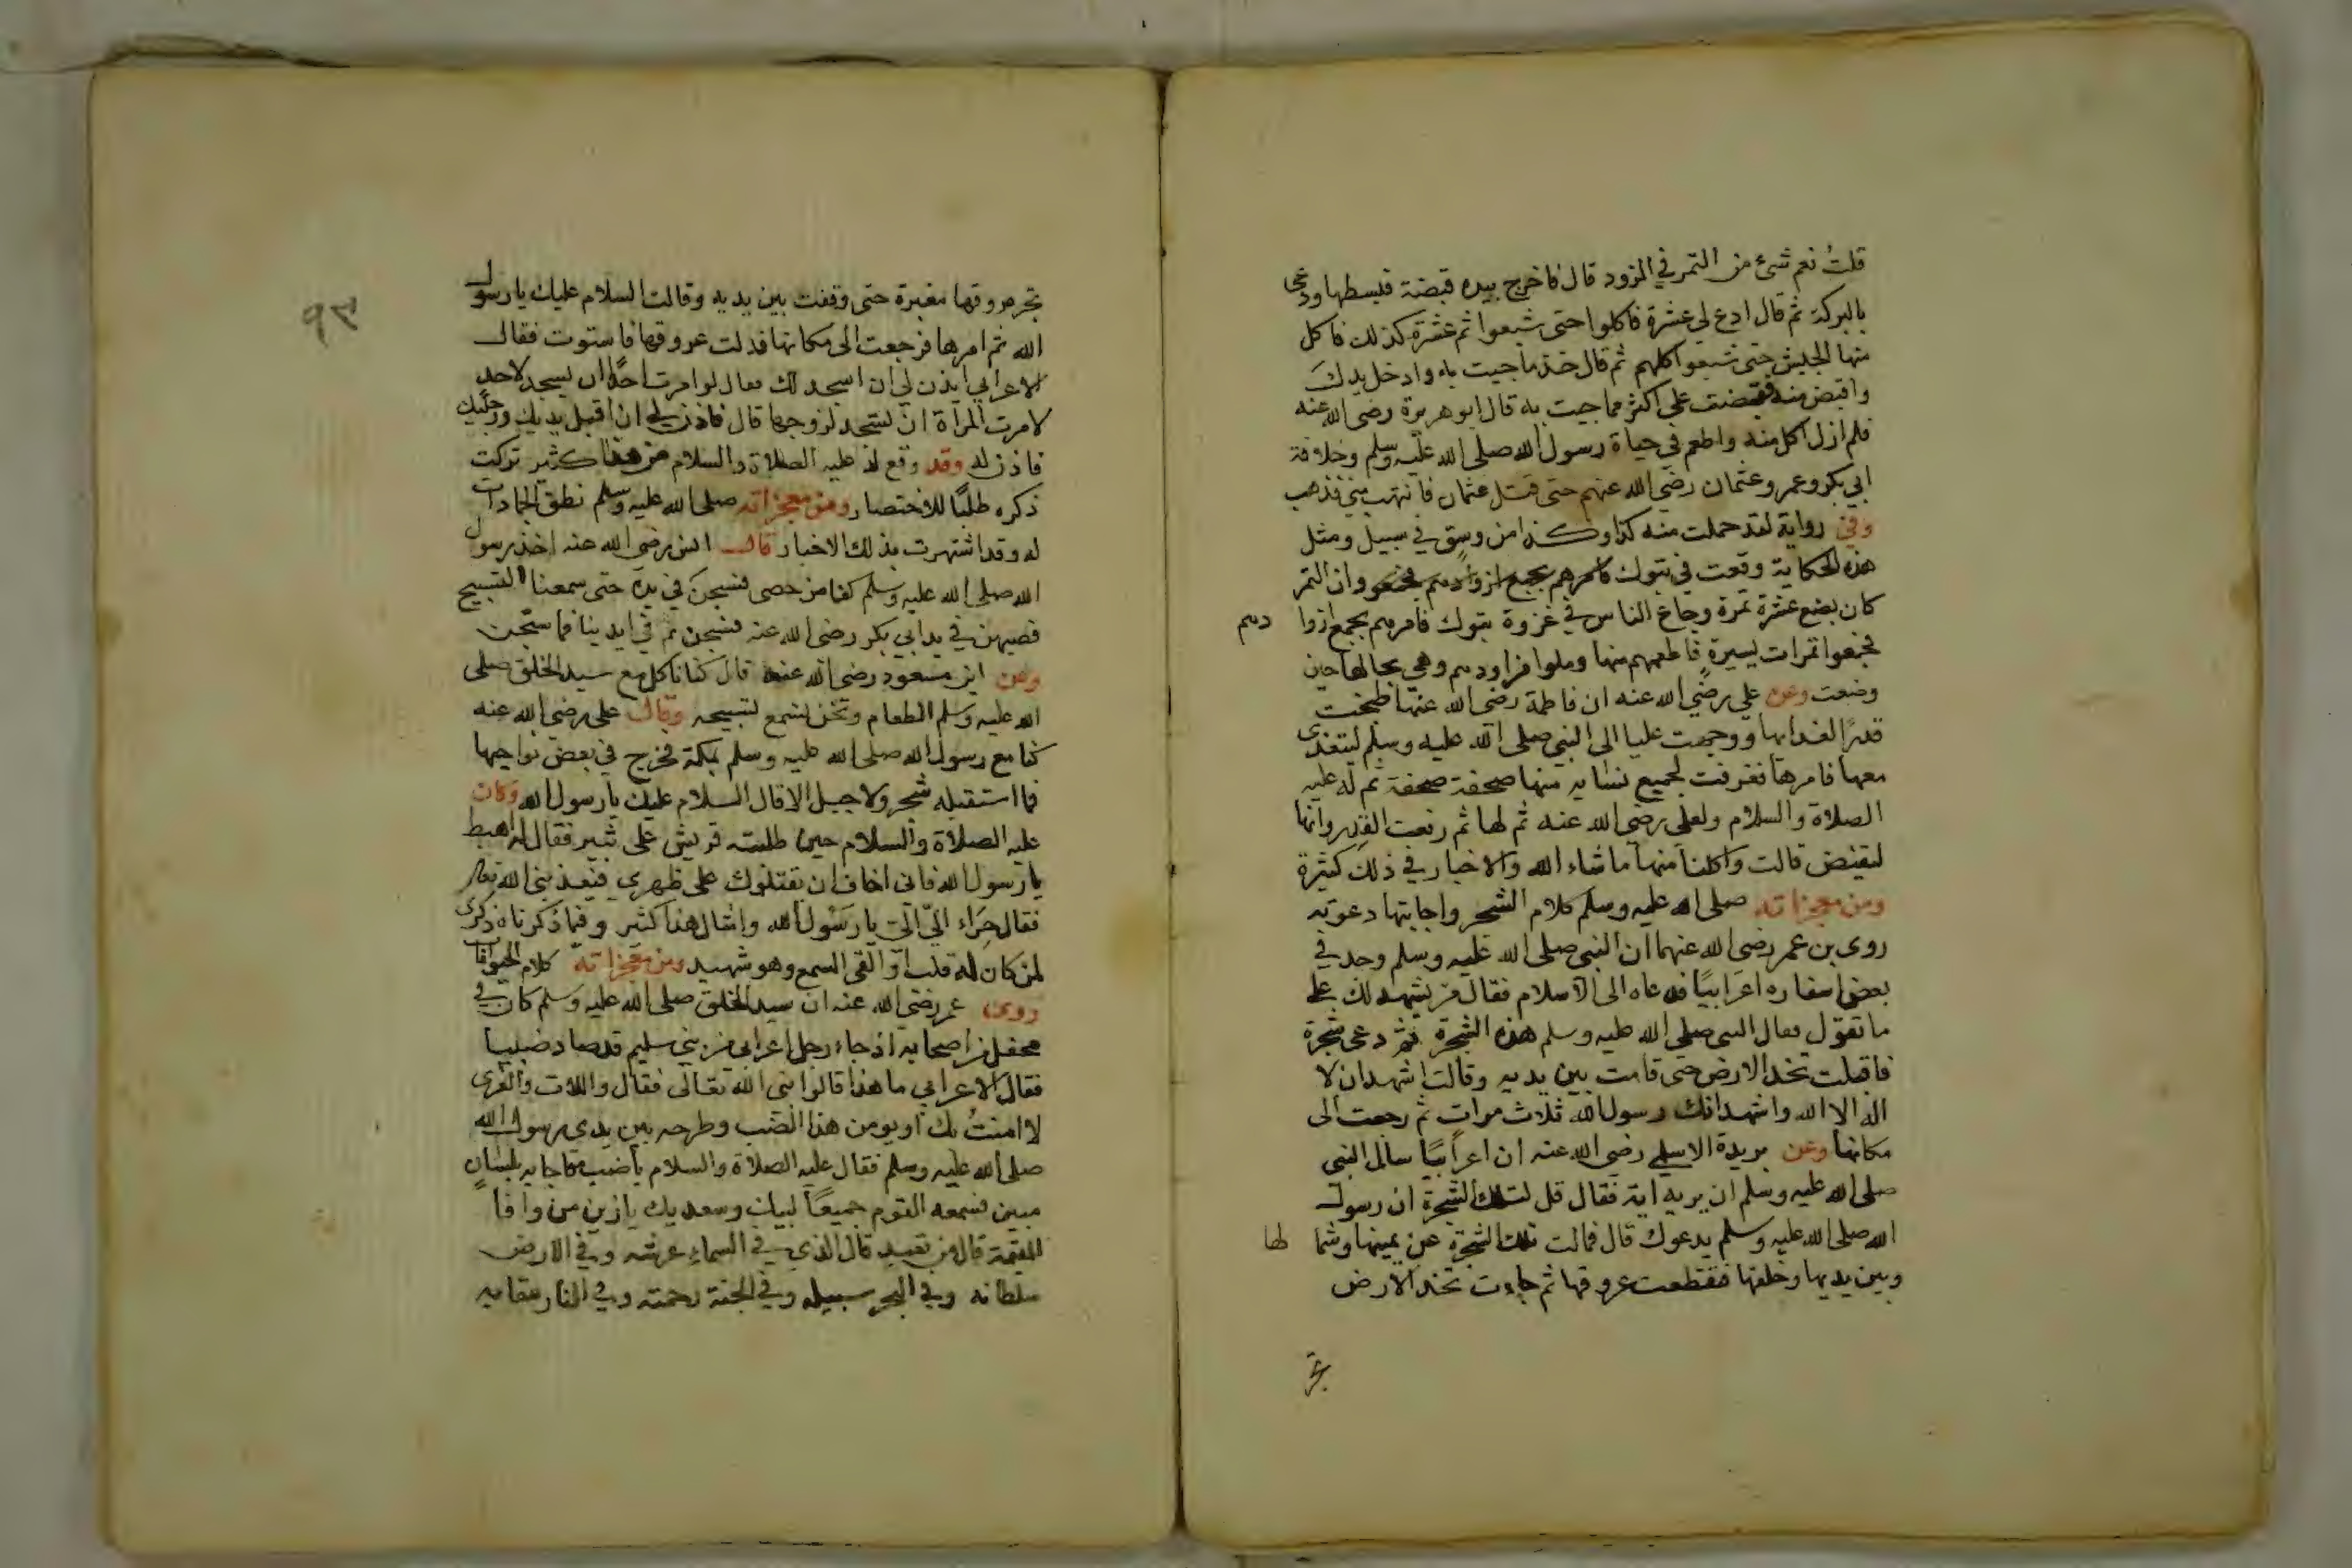 قلتُ نعم شئ من التمر في المزود قال فاخرج بيده قبضة فبسطها ودعى
بالبركة ثم قال ادع لي عشرة فاكلوا حتى شبعوا ثم عشرة كذلك فاكل
منها الجيش حتى شبعوا كلهم ثم قال خذ ما جيت به وادخل يدكَ
واقبض منه فقبضت على اكثر مما جيت به قال ابو هريرة رضى الله عنه
فلم ازل اكل منه واطعم في حياة رسول الله صلى الله عليه وسلم وخلافة
ابي بكر وعمر وعثمان رضي الله عنهم حتى قتل عثمان فانتهب مني فذهب
وفي رواية لقد حملت منه كذا وكذا من وسق في سبيل ومثل
هذه الحكاية وقعت في تبوك فامرهم بجمع ازوادهم فجمعو وان التمر
كان بضع عشرة تمرة وجاع الناس في غزوة تبوك فامرهم بجمع ازوا دهم
فجمعوا تمرات يسيرة فاطعمهم منها وملوا مزاودهم وهي بحالها حين
وضعت وعن علي رضي الله عنه ان فاطمة رضى الله عنها طبخت
قدرًا لغدايها ووجهت عليا الى النبي صلى الله عليه وسلم ليتغدى
معها فامرها فغرفت لجميع نسايه منها صحفة صحفة ثم له عليه
الصلاة والسلام ولعلي رضي الله عنه ثم لها ثم رفعت القدر وانها
لتفيض قالت واكلنا منها ما شاء الله والاخبار في ذلك كثيرة
ومن معجزاته صلى الله عليه وسلم كلام الشجر واجابتها دعوته
روى بن عمر رضى الله عنهما ان النبى صلى الله عليه وسلم وجد في
بعض اسفاره اعرابيًا فدعاه الى الاسلام فقال من يشهد لك على
ما تقول فقال النبى صلى الله عليه وسلم هذه الشجرة ثم دعى شجرة
فاقبلت تخد الارض حتى قامت بين يديه وقالت اشهد ان لا
اله الا الله واشهد انك رسول الله ثلاث مرات ثم رجعت الى
مكانها وعن بريدة الاسلمى رضى الله عنه ان اعرابيًا سال النبي
صلى الله عليه وسلم ان يريه اية فقال قل لتلك الشجرة ان رسول
الله صلى الله عليه وسلم يدعوك قال فمالت تلك الشجرة عن يمينها وشما لها
وبين يديها وخلفها فقطعت عروقها ثم جاءت تخد الارض
تجر
٩٣
تجر عروقها مغبرة حتى وقفت بين يديه وقالت السلام عليك يا رسول
الله ثم امرها فرجعت الى مكانها فدلت عروقها فاستوت فقال
الاعرابي ايذن لي ان اسجد لك فقال لو امرت احدًا ان يسجد لاحد
لامرت المرأة ان تسجد لزوجها قال فاذن لي ان اقبل يديك ورجليك
فاذن له وقد وقع له عليه الصلاة والسلام من هذا كثير تركت
ذكره طلبًا للاختصار ومن معجزاته صلى الله عليه وسلم نطق الجمادات
له وقد اشتهرت بذلك الاخبار قال انس رضي الله عنه اخذ رسول
الله صلى الله عليه وسلم كفا من حصى فسبحن في يده حتى سمعنا التسبيح
فصبهن في يد ابي بكر رضى الله عنه فسبحن ثم في ايدينا فما سبّحن
وعن ابن مسعود رضى الله عنه قال كنا ناكل مع سيد الخلق صلى
الله عليه وسلم الطعام ونحن نسمع تسبيحه وقال على رضي الله عنه
كنا مع رسول الله صلى الله عليه وسلم بمكة فخرج في بعض نواحيها
فما استقبله شجر ولا جبل الا قال السلام عليك يا رسول الله وكان
عليه الصلاة والسلام حين طلبته قريش على ثبير فقال له اهبط
يا رسول الله فانى اخاف ان يقتلوك على ظهري فيعذبني الله تعالى
فقال حِرَاء اليّ اليّ يا رَسُول الله وامثال هذا كثير وفيما ذكرناه ذكرى
لمن كان له قلب او القى السمع وهو شهيد ومن معجزاته كلام الحيوانات
روى عمر رضي الله عنه ان سيد الخلق صلى الله عليه وسلم كان في
محفل من اصحابه اذ جاء رجل اعرابى من بني سليم قد صاد ضبيا
فقال الاعرابي ما هذا قالوا نبى الله تعالى فقال واللات والعزى
لا امنتُ بك او يومن هذا الضب وطرحه بين يدى رسول الله
صلى الله عليه وسلم فقال عليه الصلاة والسلام يا ضب فاجابه بلسانٍ
مبين فسمعه القوم جميعًا لبيك وسعديك يا زين من وافا
القيمة قال من تعبد قال الذي في السماء عرشه وفي الارض
سلطانه وفي البحر سبيله وفي الجنة رحمته وفي النار عقابه